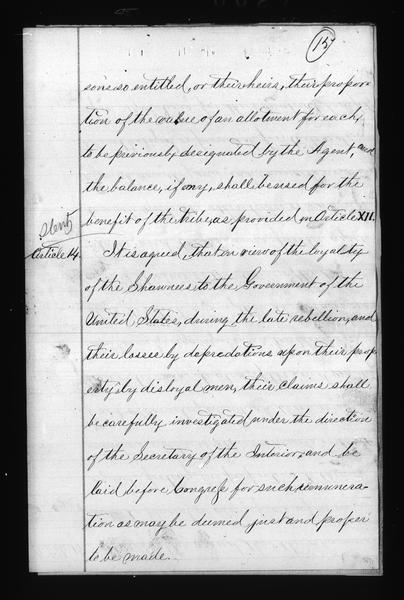 15
sons so entitled, or their heirs, their propor-
tion of the value of an allotment for each,
to be previously designated by the Agent, and
the balance, if any, shall be used for the
benefit of the tribe, as provided in Article XII.
Article 14. It is agreed, that in view of the loyalty
of the Shawnees to the Government of the
United States, during the late rebellion, and
their losses by depredations upon their prop
erty by disloyal men, their claims shall
be carefully investigated under the direction
of the Secretary of the Interior, and be
laid before Congress for such remunera-
tion as may be deemed just and proper
to be made.